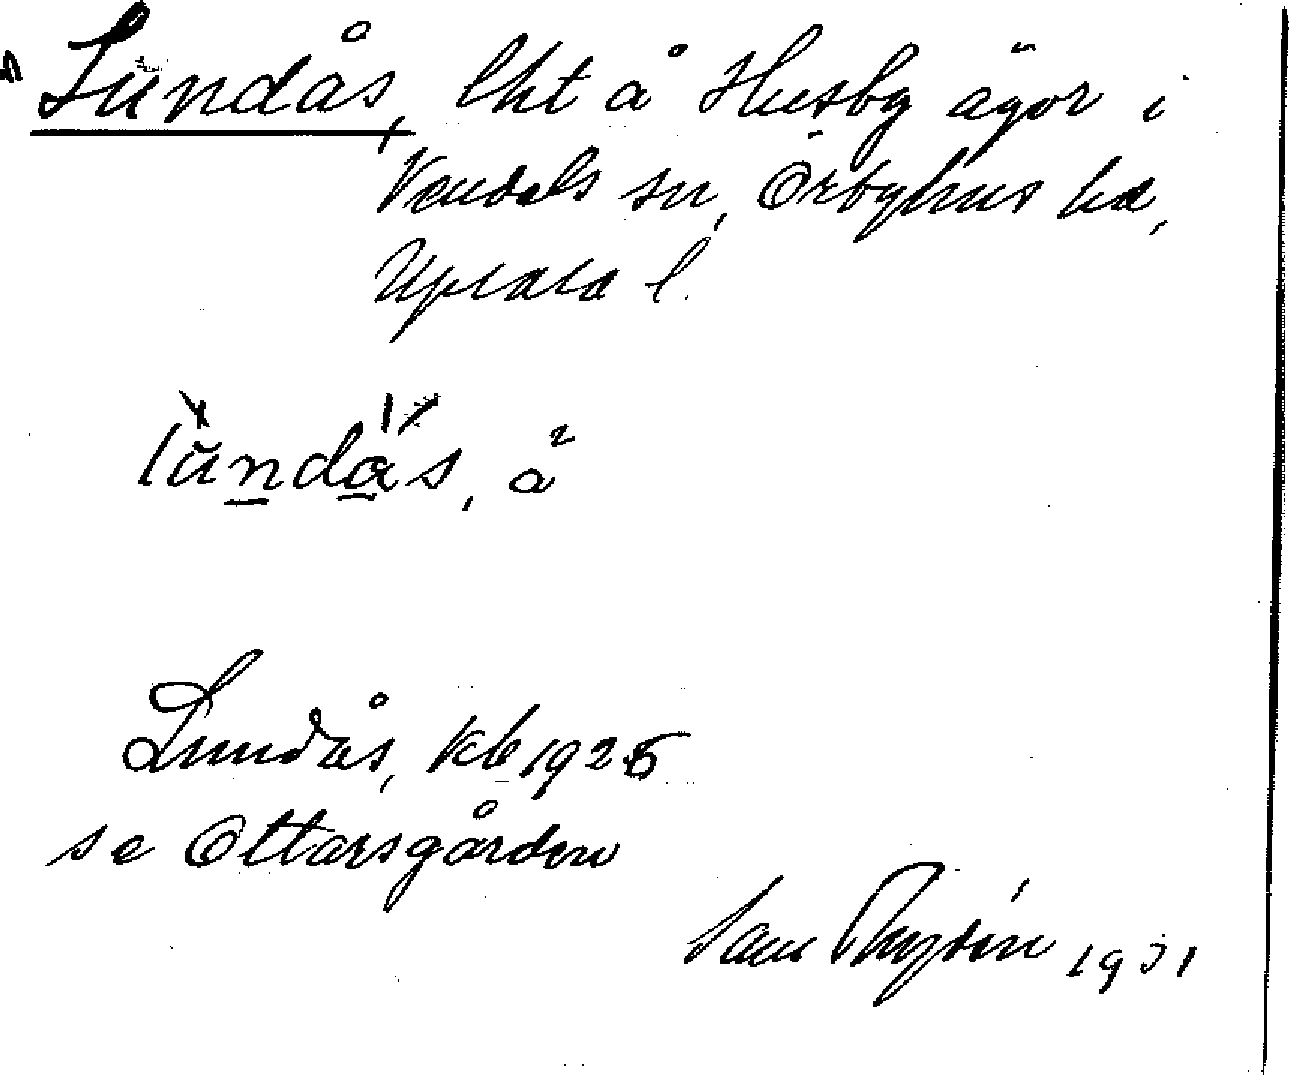 Lundås, lht å Husby ägor i
Vendels sn, Örbyhus hd,
Upsala l.
lŭndås, å²
Lundås, Kb 1925
se Ottarsgården
1931